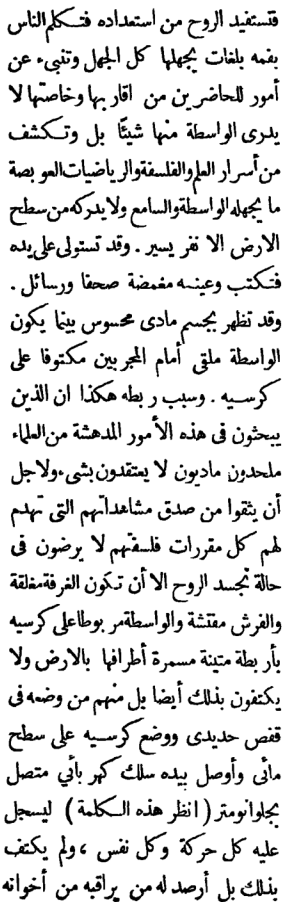 فتستفيد الروح من استعداده فتكلم الناس
بفمه بلغات يجهلها كل الجهل وتنبىء عن
أمور للحاضرين من اقاربها وخاصتها لا
يدرى الواسطة منها شيئًا بل وتكشف
من أسرار العلم والفلسفة والرياضيات العويصة
ما يجهله الواسطة والسامع ولا يدركه من سطح
الارض الا نفر يسير . وقد تستولى على يده
فتكتب وعينه مغمضة صحفا ورسائل .
وقد تظهر بجسم مادى محسوس بينما يكون
الواسطة ملقى أمام المجربين مكتوفا على
كرسيه . وسبب ربطه هكذا ان الذين
يبحثون فى هذه الأمور المدهشة من العلماء
ملحدون ماديون لا يعتقدون بشىء ، ولاجل
أن يثقوا من صدق مشاهداتهم التى تهدم
لهم كل مقررات فلسفتهم لا يرضون فى
حالة تجسد الروح الا أن تكون الغرفة مغلقة
والفرش مفتشة والواسطة مربوطا على كرسيه
بأربطة متينة مسمرة أطرافها بالارض ولا
يكتفون بذلك أيضا بل منهم من وضعه فى
قفص حديدى ووضع كرسيه على سطح
مائى وأوصل بيده سلك كهربائي متصل
بجلوانومتر ( انظر هذه الكلمة ) ليسجل
عليه كل حركة وكل نفس ، ولم يكتف
بذلك بل أرصد له من يراقبه من أخوانه